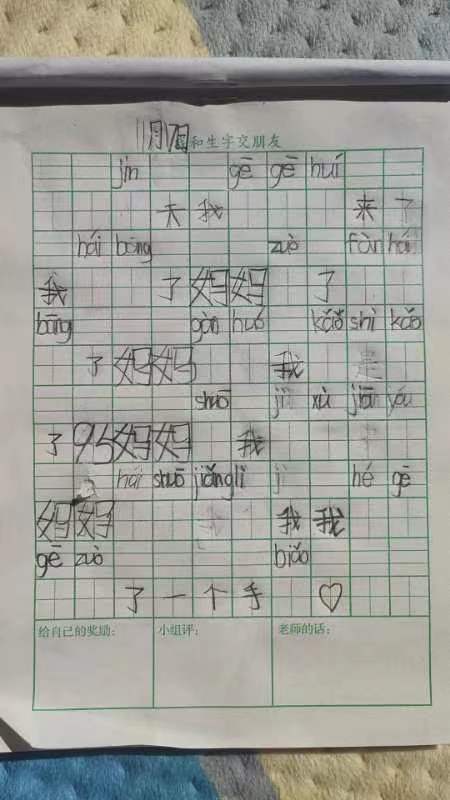 11月17日 和生字交朋友
jīn gē gē huí
天 我 来 了
hái bāng zuò fàn hái
我 了 妈 妈 了
bāng gàn huó kǎo shì kǎo
了 妈 妈 我 是
shuō jì xù jiā yóu
了 95 妈 妈 我
hái shuō jiǎng lì jì hé gē
妈 妈 我 我 我
gē zuò biǎo
了 一 个 手 ♡
给自己的奖励： 小组评： 老师的话：